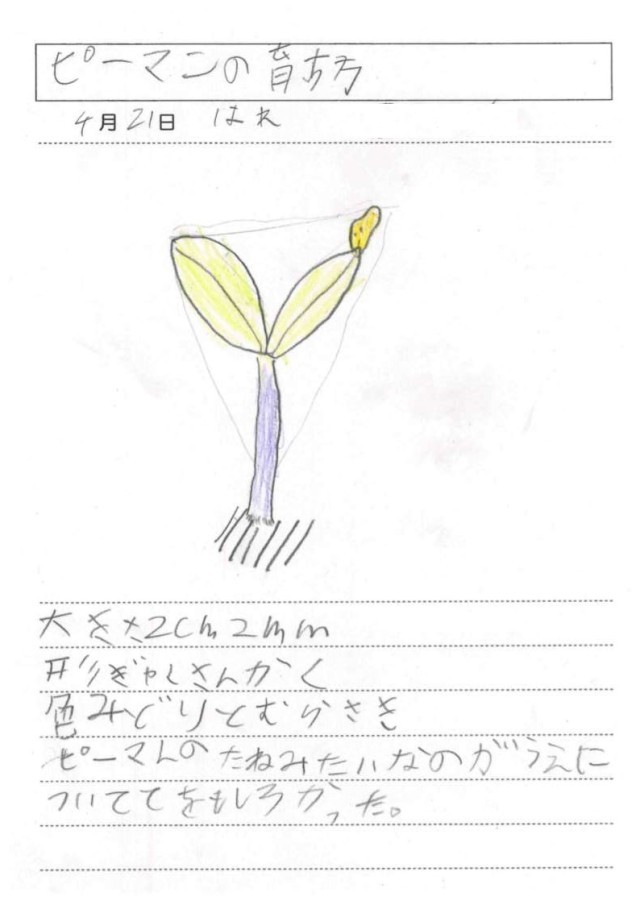 ピーマンの育ち方
4月21日 はれ
大きさ2cm2mm
形ぎゃくさんかく
色みどりとむらさき
ピーマんのたねみたいなのがうえに
ついててをもしろかった。